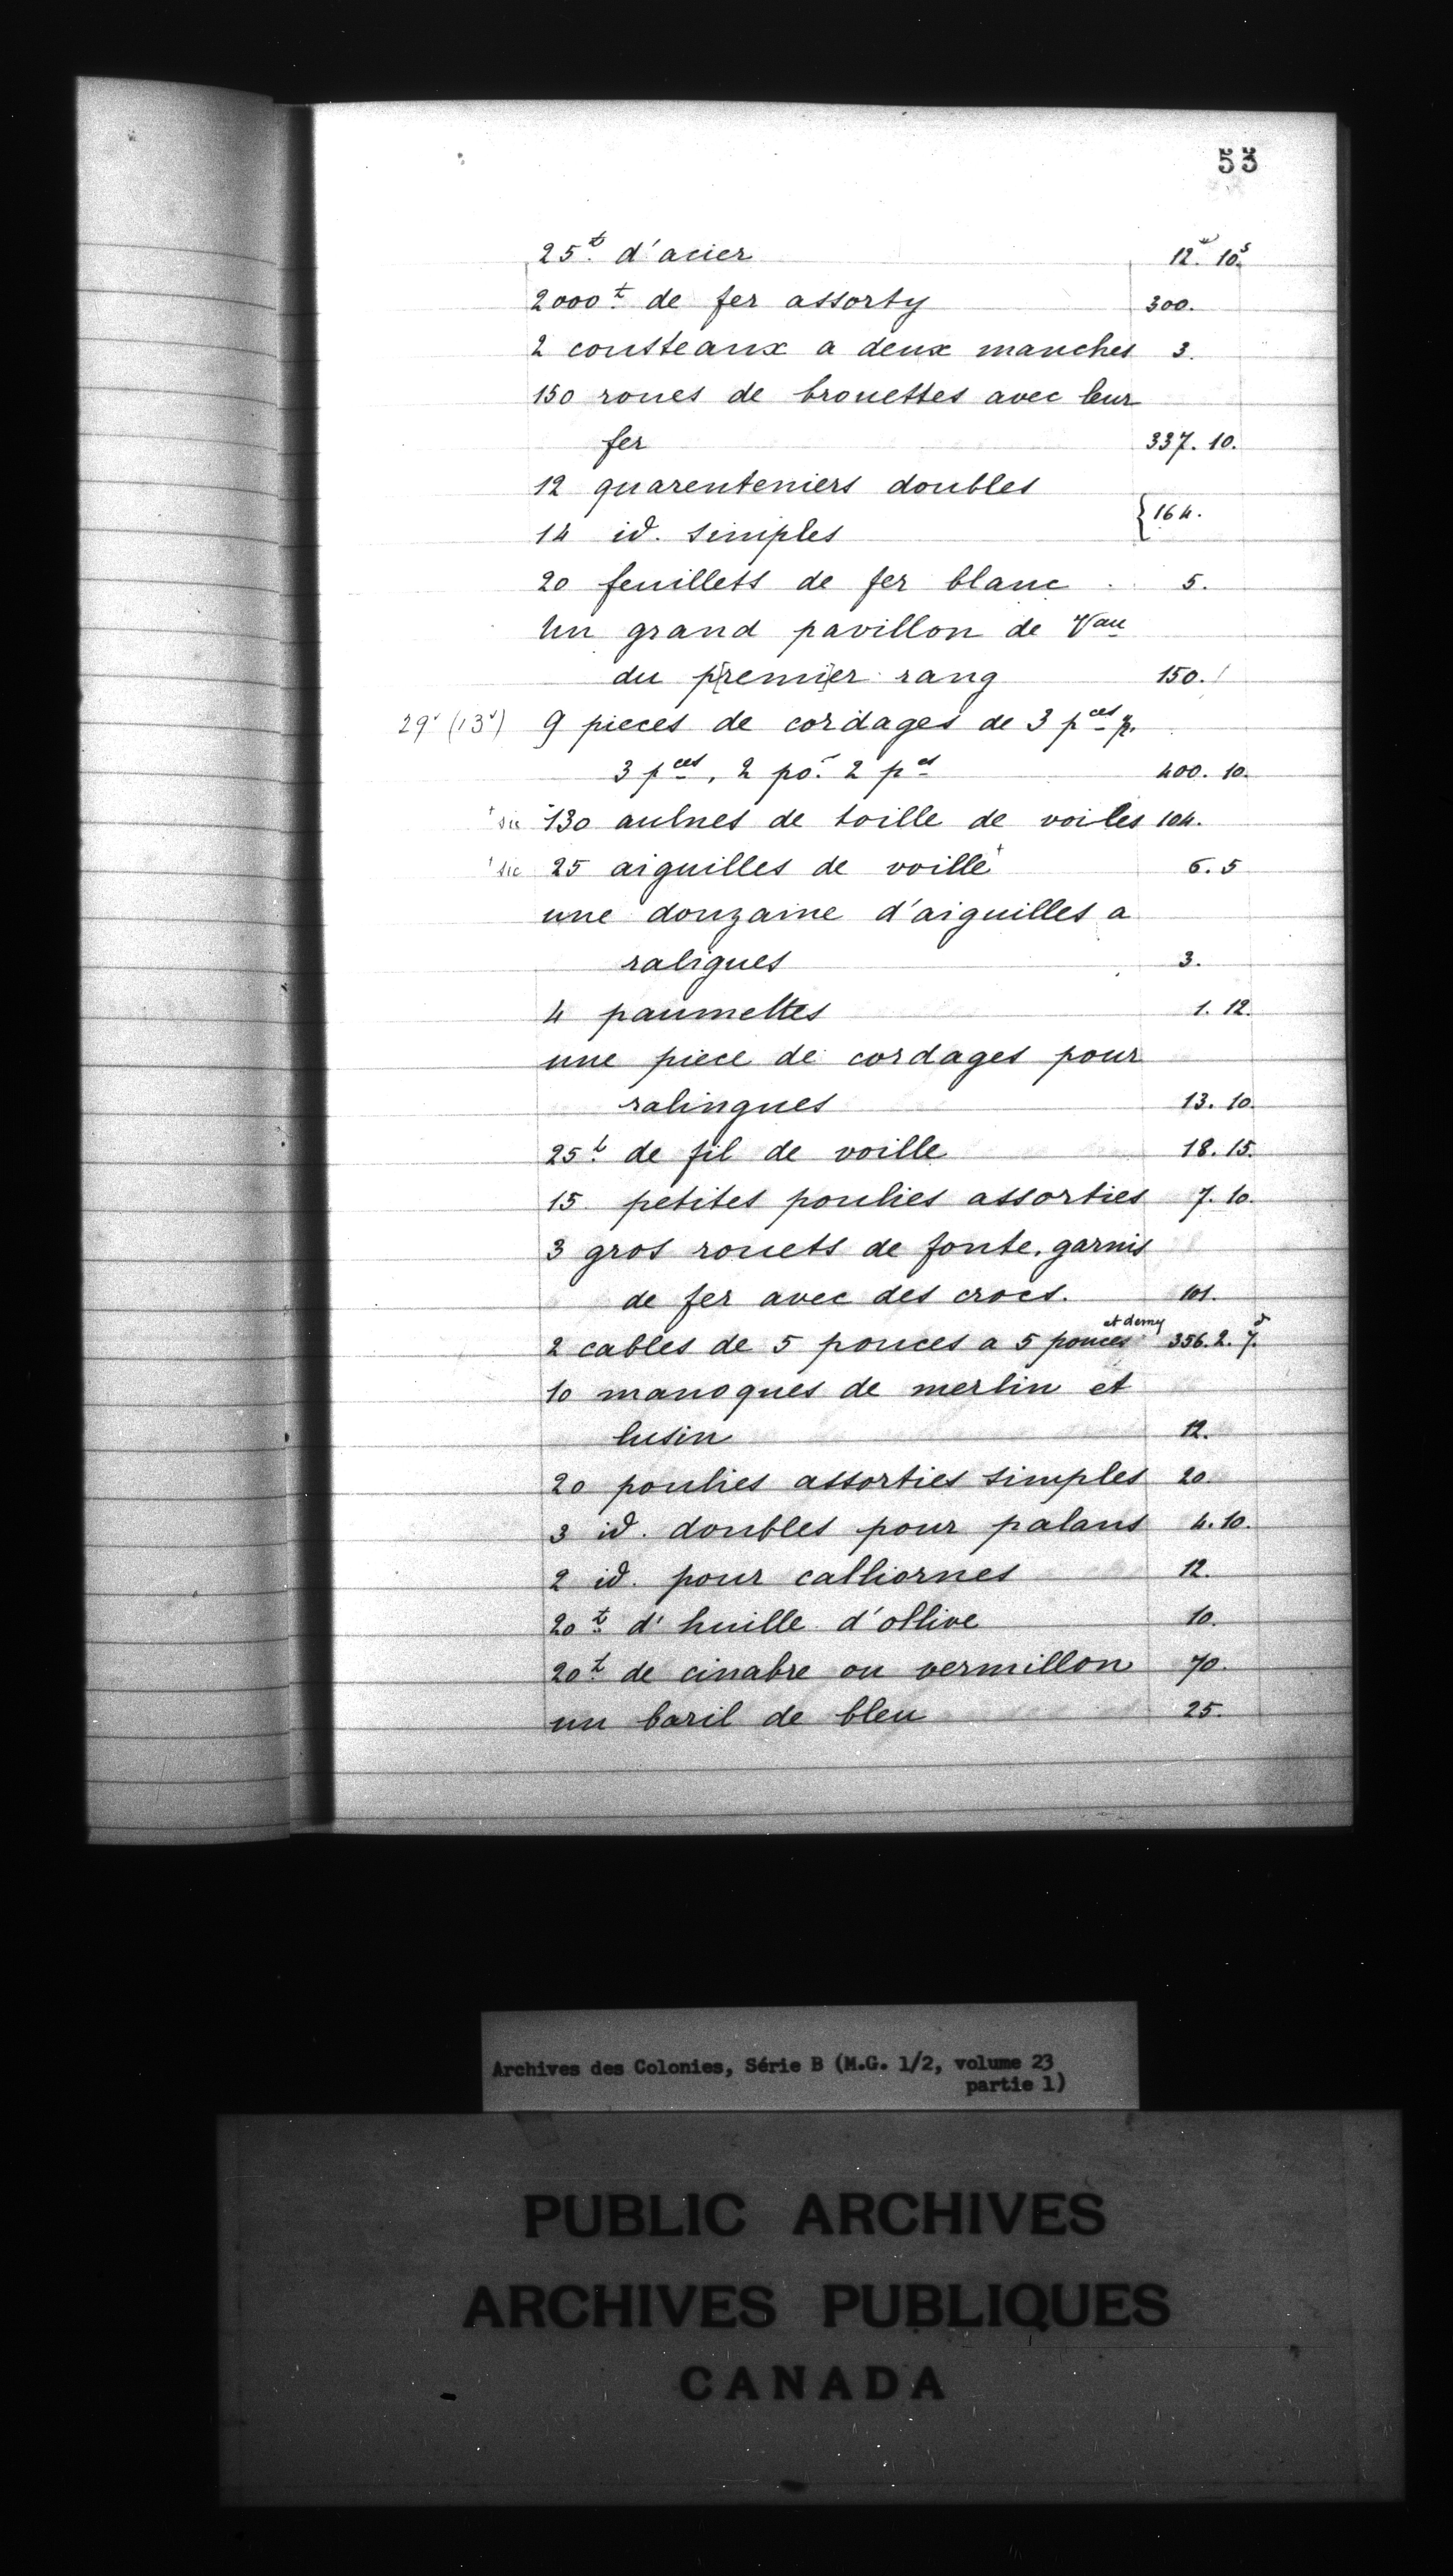 53
25ᵗ d'acier 12ᵗ 10ˢ
2000ᵗ de fer assorty 300.
2 cousteaux a deux manches 3.
150 roues de brouettes avec leur
fer 337. 10.
12 quarenteniers doubles
{164.
14 id. simples
20 feuillets de fer blanc . 5.
Un grand pavillon de Vau
du p[remi]er rang 150.
29ᵛ (13ᵛ) 9 pieces de cordages de 3 pces
3 pces, 2 po. 2 pces 400. 10.
+ sic 130 aulnes de toille de voiles 104.
+ sic 25 aiguilles de voille+ 6. 5
une douzaine d'aiguilles a
raligues 3.
4 paumettes 1. 12.
une piece de cordages pour
ralingues 13. 10.
25ᵗ de fil de voille 18. 15.
15 petites poulies assorties 7. 10.
3 gros rouets de fonte, garnis
de fer avec des crocs. 101.
2 cables de 5 pouces a 5 pouces et demy 356. 2. 7ᵈ
10 manoques de merlin et
lusin 12.
20 poulies assorties simples 20.
3 id. doubles pour palans 4. 10.
2 id. pour calliornes 12.
20ᵗ d'huille d'ollive 10.
20ᵗ de cinabre ou vermillon 70.
un baril de bleu 25.
Archives des Colonies, Série B (M.G. 1/2, volume 23
partie 1)
PUBLIC ARCHIVES
ARCHIVES PUBLIQUES
CANADA